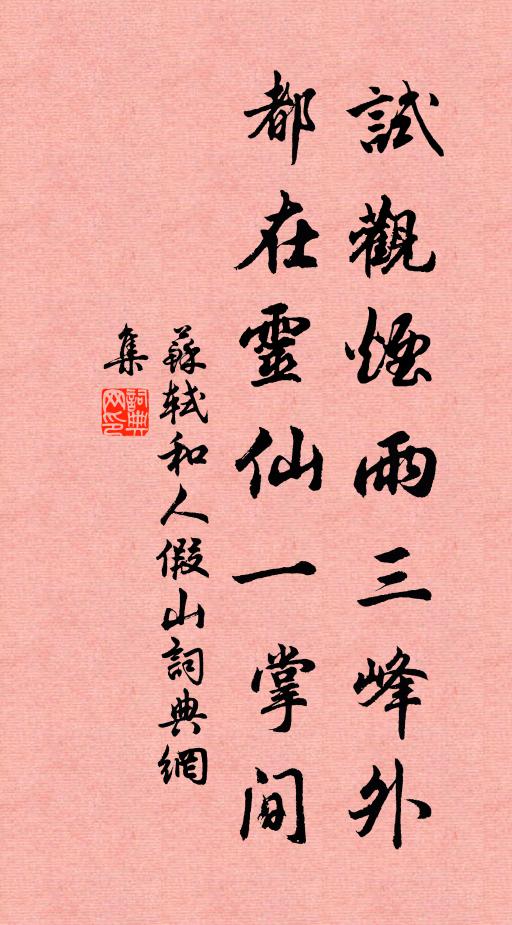 試觀煙雨三峰外
都在靈仙一掌間
蘇軾和人假山詞典網
集
詞典網印